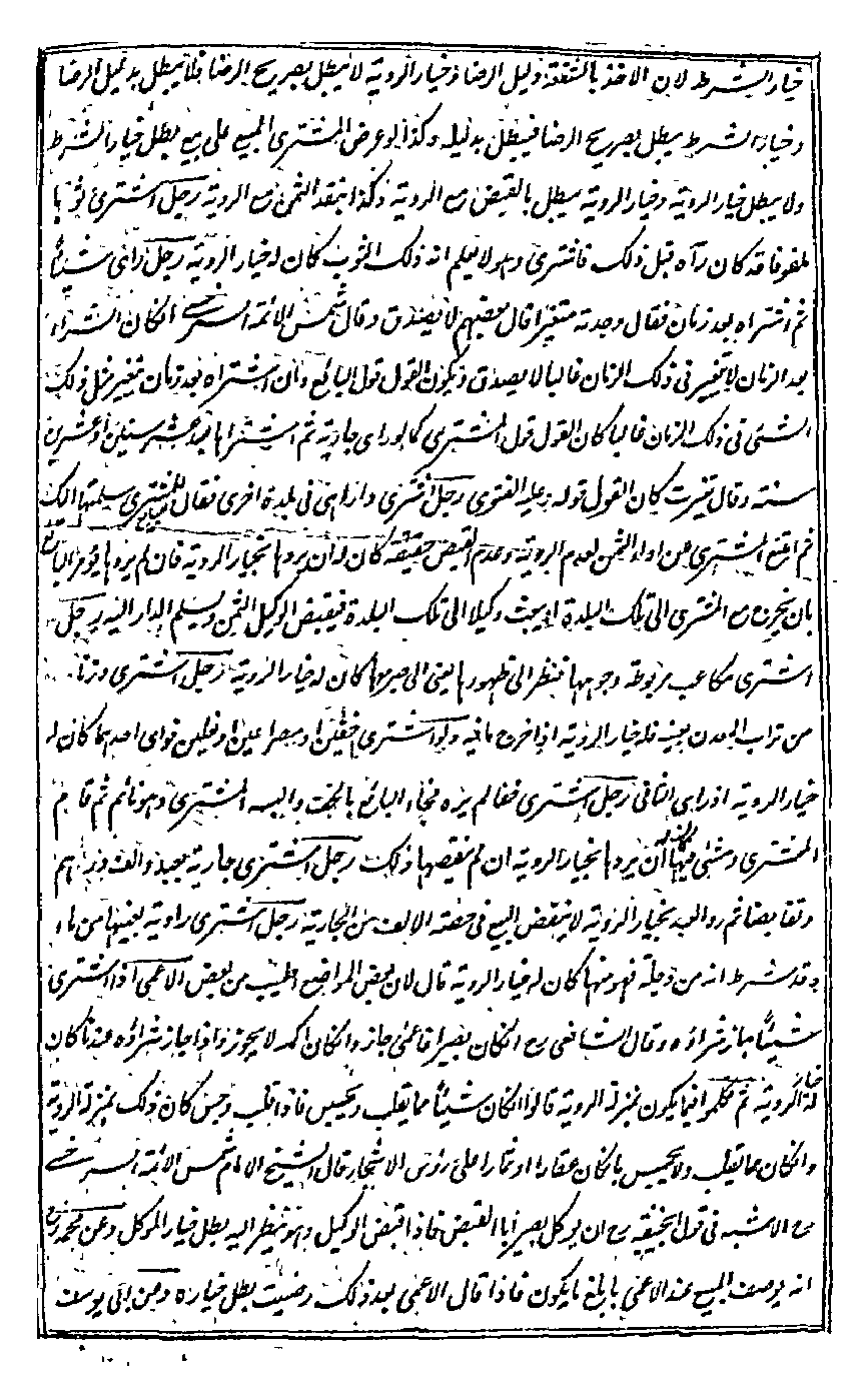 خيار الشرط لان الاخذ بالشفعة دليل الرضا وخيار الروية لا يبطل بصريح الرضا فلا يبطل بدليل الرضا
وخيار الشرط يبطل بصريح الرضا فيبطل بدليله وكذا لو عرض المشترى المبيع على بيع بطل خيار الشرط
ولا يبطل خيار الروية وخيار الروية يبطل بالقبض مع الروية وكذا بنقد الثمن مع الروية رجل اشترى ثوبا
ملفوفا قد كان رآه قبل ذلك فاشترى وهو لا يعلم انه ذلك الثوب كان له خيار الروية رجل راى شيئا
ثم اشتراه بعد زمان فقال وجدته متغيرا قال بعضهم لا يصدق وقال شمس الائمة السرخسى انكان الشراء
بعد الزمان لا يتغير فى ذلك الزمان غالبا لا يصدق ويكون القول قول البائع وان اشتراه بعد زمان يتغير مثل ذلك
الشئ فى ذلك الزمان غالبا كان القول قول المشترى كما لو راى جارية ثم اشتراها بعد عشر سنين او عشرين
سنة وقال تغيرت كان القول قوله وعليه الفتوى رجل اشترى دارا هى فى بلدة اخرى فقال للمشترى سلمتها اليك
ثم امتنع المشترى من اداء الثمن لعدم الروية وعدم القبض حقيقة كان له ان يردها بخيار الروية فان لم يردها يؤمر البائع
بان يخرج مع المشترى الى تلك البلدة او يبعث وكيلا الى تلك البلدة فيقبض الوكيل الثمن ويسلم الدار اليه رجل
اشترى مكاعب مربوطة وجوهها فنظر الى ظهورها يعنى الى صرمها كان له خيار الروية رجل اشترى وزنا
من تراب المعدن بعينه فله خيار الروية اذا خرج ما فيه ولو اشترى خفين او مصراعين او نعلين فراى احدهما كان له
خيار الروية اذ راى الثانى رجل اشترى خفا لم يره فجاء البائع بالخف والبسه المشترى وهو نائم ثم قام
المشترى ومشى فيها له ان يردها بخيار الروية ان لم ينقصها ذلك رجل اشترى جارية بعبد والف دراهم
وتقابضا ثم رد العبد بخيار الروية لا ينتقض البيع فى حصة الالف من الجارية رجل اشترى راوية بعينها من ماء
وقد شرط انه من دجلة فهو منها كان له خيار الروية قال لان بعض المواضع اطيب من بعض الاعمى اذا اشترى
شيئا جاز شراؤه وقال الشافعى رح انكان بصيرا فاعمى جاز وانكان اكمه لا يجوز واذا جاز شراؤه عندنا كان
له خيار الروية ثم تكلموا فيما يكون بمنزلة الروية قالوا انكان شيئا مما يقلب ويجس فاذا قلب وجس كان ذلك بمنزلة الروية
وانكان مما يقلب ولا يجس بان كان عقارا او ثمارا على رؤس الاشجار قال الشيخ الامام شمس الائمة السرخسى
رح الاشبه فى قول ابيحنيفة رح ان يوكل بصيرا بالقبض فاذا قبض الوكيل وهو ينظر اليه بطل خيار الموكل وعن محمد رح
انه يوصف المبيع عند الاعمى بابلغ ما يكون فاذا قال الاعمى بعد ذلك رضيت بطل خياره وعن ابى يوسف